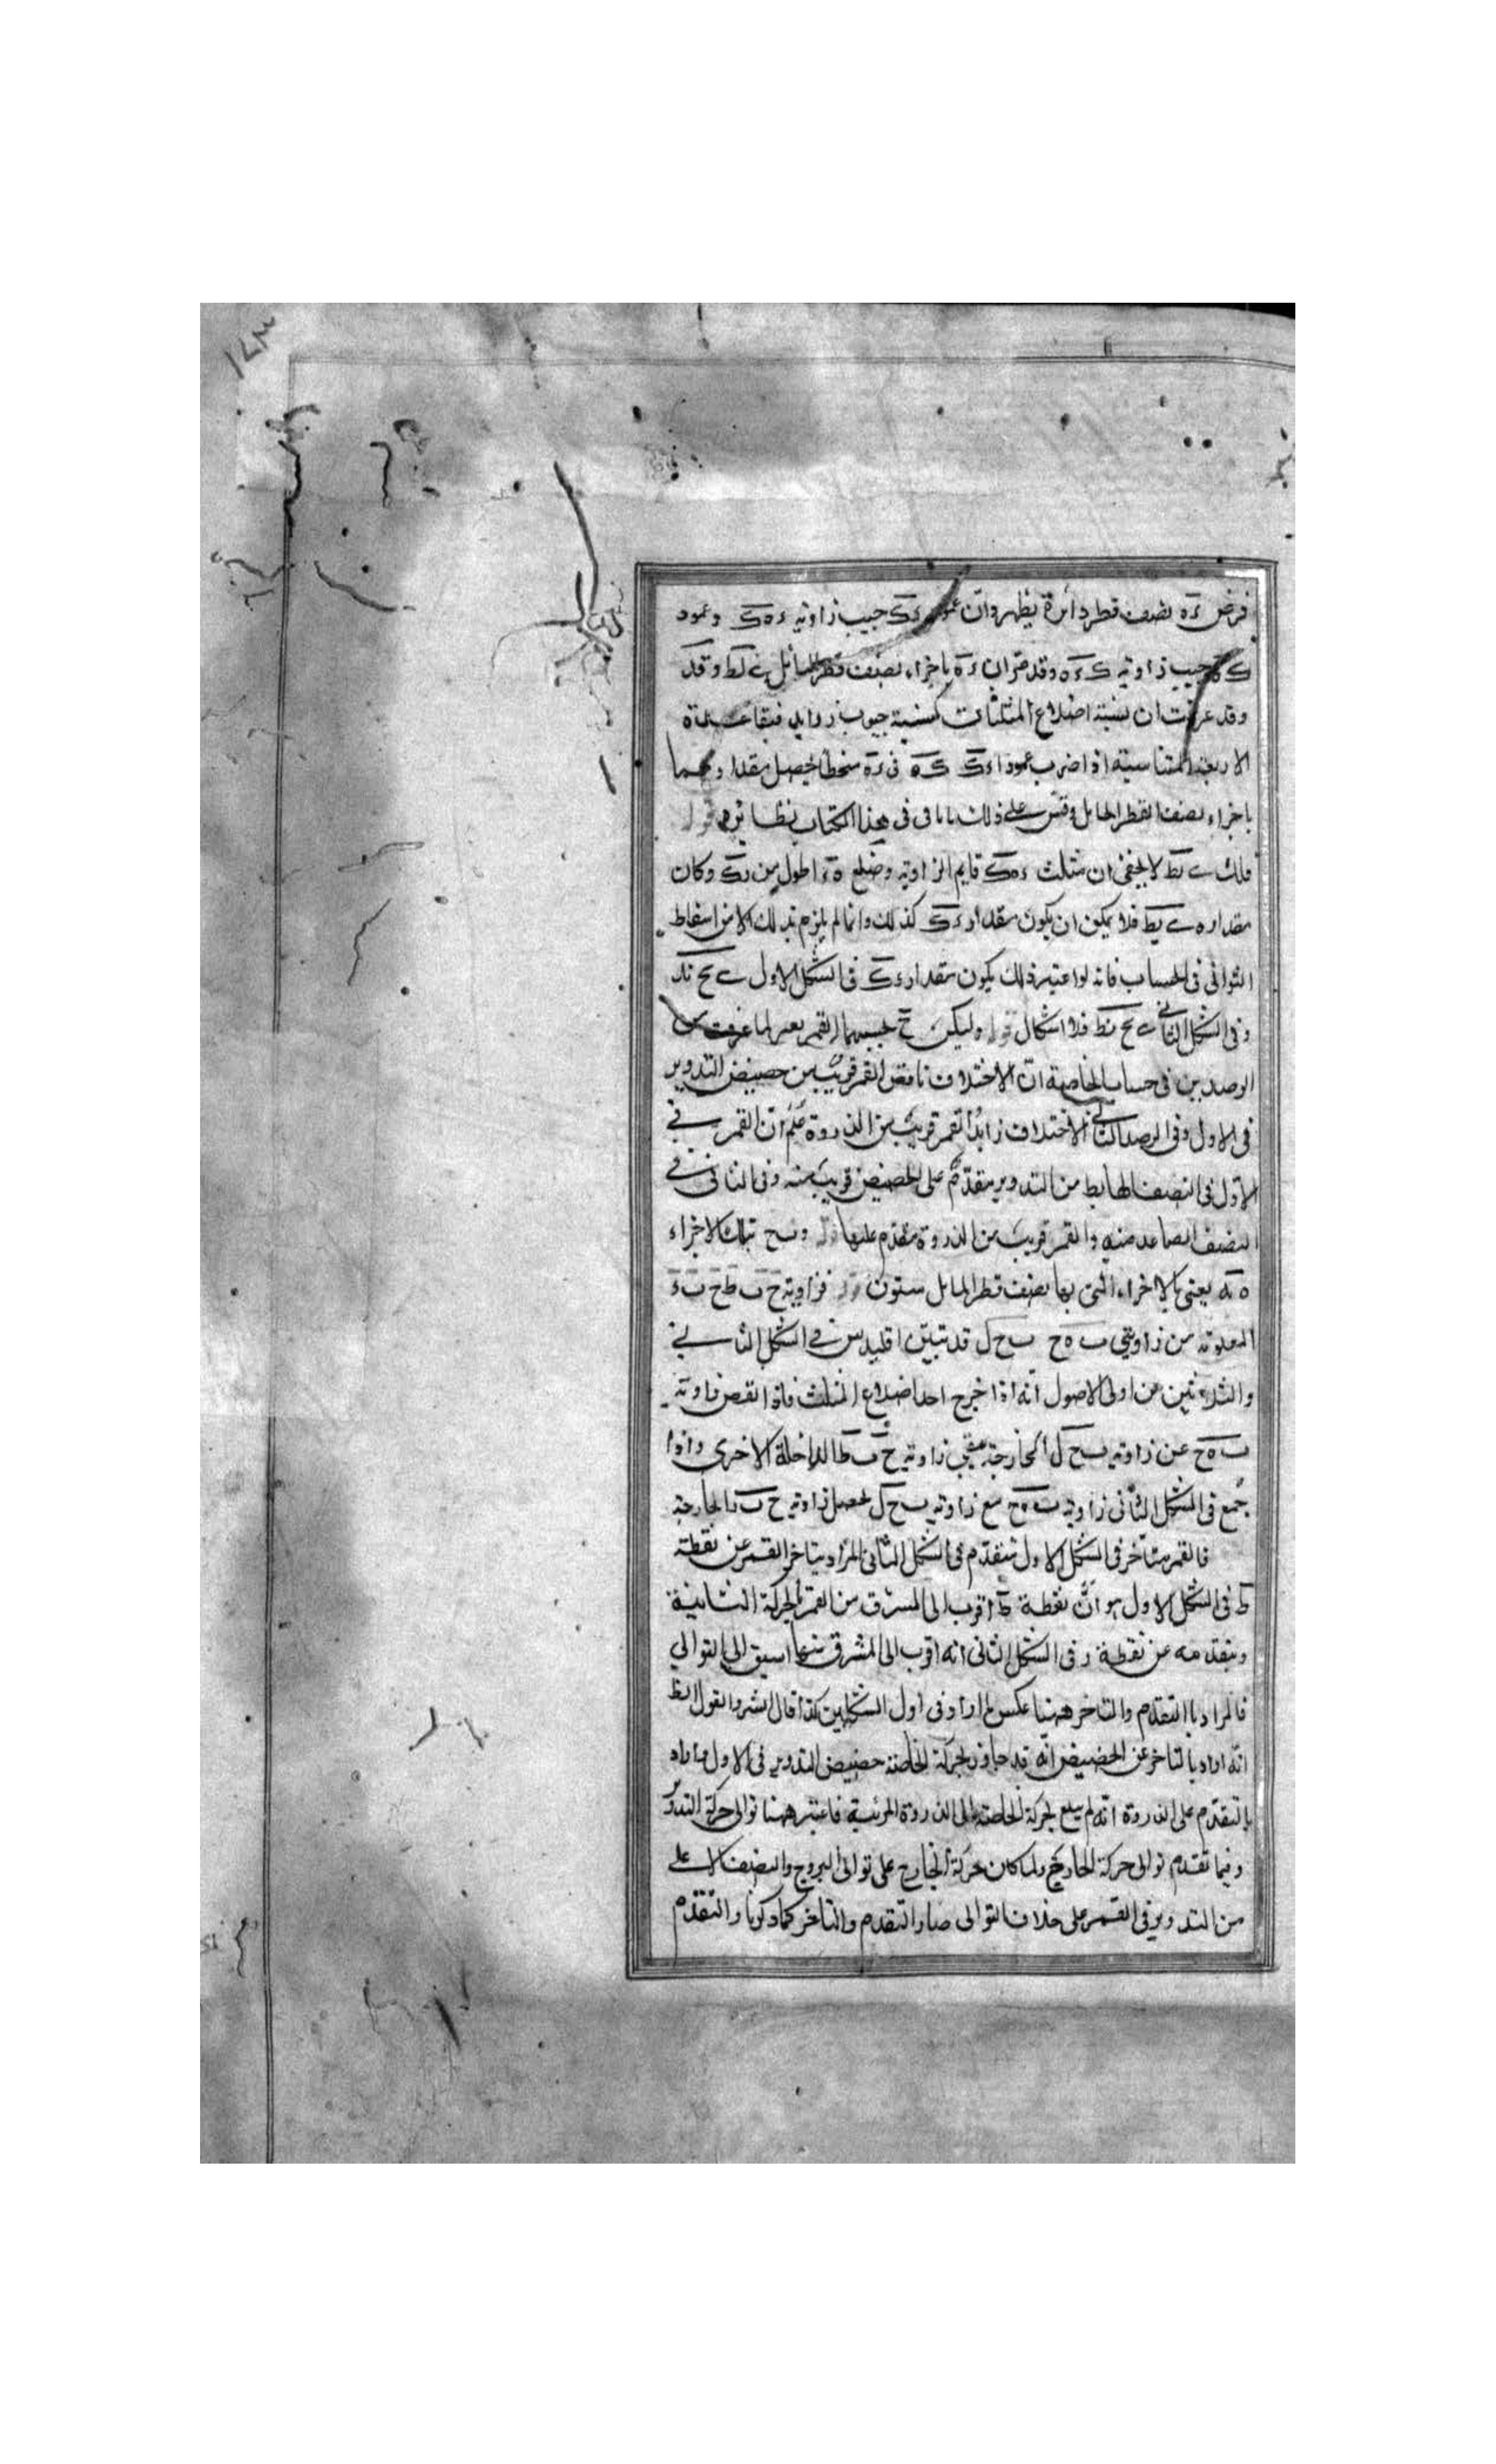 ١٧٣
فرض ءه نصف قطر دائرة يظهر وان عمود ءك جيب زاوية ءهك وعمود
كه جيب زاوية كءه وقد مر ان ءه باجزاء نصف قطر المائل ى لط وقد
وقد عرفت ان نسبة اضلاع المثلثات كنسبة جيوب زوايا فبقاعدة
الاربعة المتناسبة اذا ضرب عمودا ءك كه فى ءه منحطا يحصل مقدارهما
باجزاء نصف القطر المايل وقس على ذلك باقى فى هذا الكتاب نظائره قوله
لا يخفى ان مثلث ءهك قايم الزاوية وضلع هء اطول من ءك وكان
مقداره ى يط فلا يمكن ان يكون مقدار ءك كذلك وانما لم يلزم ذلك الا من اسقاط
الثوانى فى الحساب فانه لو اعتبر ذلك يكون مقدار ءك فى الشكل الاول ى يح ند
وفى الشكل الثانى ى يح نط فلا اشكال قوله وليكن ح بحسبهما القمر يعنى لما عرفت من
الرصدين فى حساب الخاصة ان الاختلاف ناقص القمر قريب من حضيض التدوير
فى الاول وفى الرصد الثانى الاختلاف زايد القمر قريب من الذروة علم ان القمر فى
الاول فى النصف الهابط من التدوير متقدم على الحضيض قريب منه وفى الثانى فى
النصف الصاعد منه والقمر قريب من الذروة متقدم عليها قوله وبح بتلك الاجزاء
ه يه يعنى بالاجزاء التى بها نصف قطر المايل ستون قوله فزاوية ح ب ط ح ب ء
المعلومة من زاويتى ب ه ح ب ح ل قد تبين اقليدس فى الشكل الثانى
والثلاثين من اولى الاصول انه اذا خرج احد اضلاع المثلث فاذا نقص زاوية
ب ه ح عن زاوية ب ح ل الخارجة يبقى زاوية ح ب ط الداخلة الاخرى واذا
جمع فى الشكل الثانى زاوية ب ه ح مع زاوية ب ح ل يحصل زاوية ح ب ر الخارجة
فالقمر متاخر فى الشكل الاول متقدم فى الشكل الثانى المراد بتاخر القمر عن نقطة
ط فى الشكل الاول هو ان نقطة ط اقرب الى المشرق من القمر بالحركة الثانية
وبتقدمه عن نقطة ر فى الشكل الثانى انه اقرب الى المشرق منها اسبق الى التوالى
فالمراد بالتقدم والتاخر ههنا عكس ما اراد فى اول الشكلين كذا قال الشر والقول الظ
انه اراد بالتاخر عن الحضيض انه قد جاوز بحركة الخاصة حضيض التدوير فى الاول واراد
بالتقدم على الذروة انه لم يبلغ بحركة الخاصة الى الذروة المرئية فاعتبر ههنا توالى حركة التدوير
وفيما تقدم توالى حركة الخارج ولما كان حركة الخارج على توالى البروج والنصف الاعلى
من التدوير فى القمر على خلاف التوالى صار التقدم والتاخر كما ذكرنا والتقدم